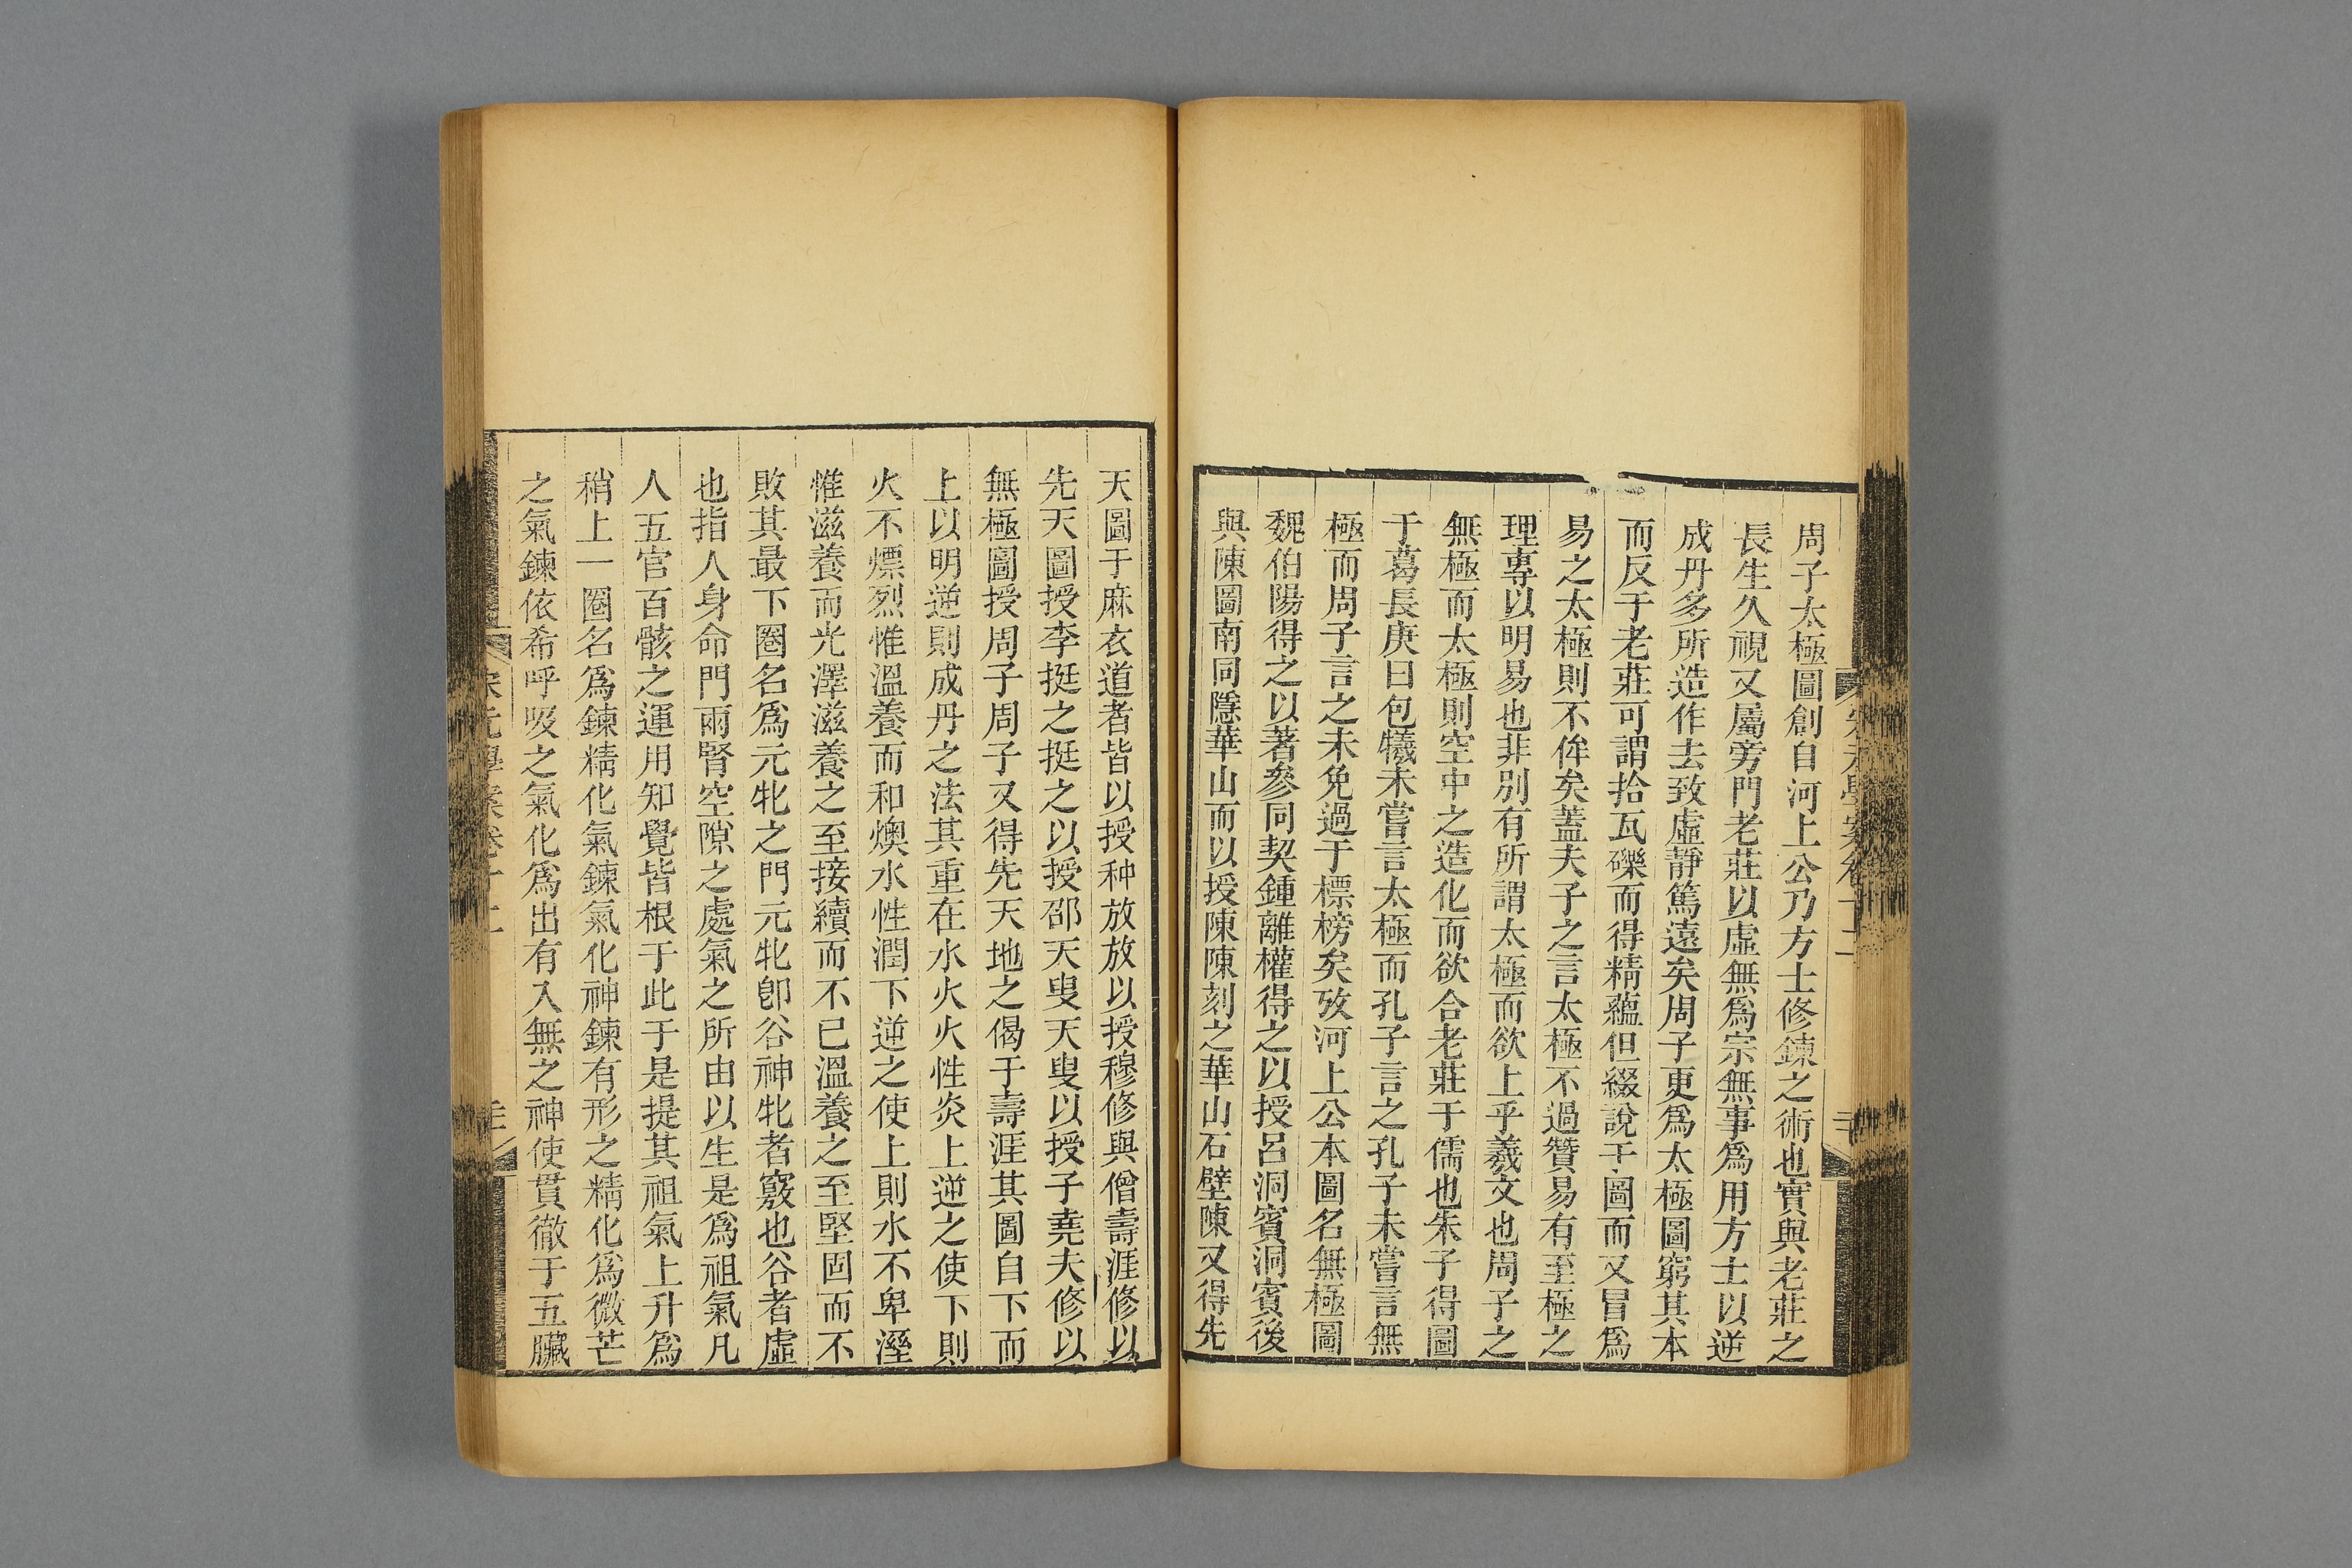 周子太極圖創自河上公乃方士修鍊之術也實與老莊之
長生久視又屬旁門老莊以虛無爲宗無事爲用方士以逆
成丹多所造作去致虛靜篤遠矣周子更爲太極圖窮其本
而反于老莊可謂拾瓦礫而得精蘊但綴說于圖而又冒爲
易之太極則不侔矣蓋夫子之言太極不過贊易有至極之
理專以明易也非別有所謂太極而欲上乎羲文也周子之
無極而太極則空中之造化而欲合老莊于儒也朱子得圖
于葛長庚曰包犧未嘗言太極而孔子言之孔子未嘗言無
極而周子言之未免過于標榜矣攷河上公本圖名無極圖
魏伯陽得之以著參同契鍾離權得之以授呂洞賓洞賓後
與陳圖南同隱華山而以授陳陳刻之華山石壁陳又得先
天圖于麻衣道者皆以授种放放以授穆修與僧壽涯修以
先天圖授李挺之挺之以授邵天叟天叟以授子堯夫修以
無極圖授周子周子又得先天地之偈于壽涯其圖自下而
上以明逆則成丹之法其重在水火火性炎上逆之使下則
火不熛烈惟溫養而和燠水性潤下逆之使上則水不卑溼
惟滋養而光澤滋養之至接續而不已溫養之至堅固而不
敗其最下圈名爲元牝之門元牝卽谷神牝者竅也谷者虛
也指人身命門兩腎空隙之處氣之所由以生是爲祖氣凡
人五官百骸之運用知覺皆根于此于是提其祖氣上升爲
稍上一圈名爲鍊精化氣鍊氣化神鍊有形之精化爲微芒
之氣鍊依希呼吸之氣化爲出有入無之神使貫徹于五臟
宋元學案卷十二